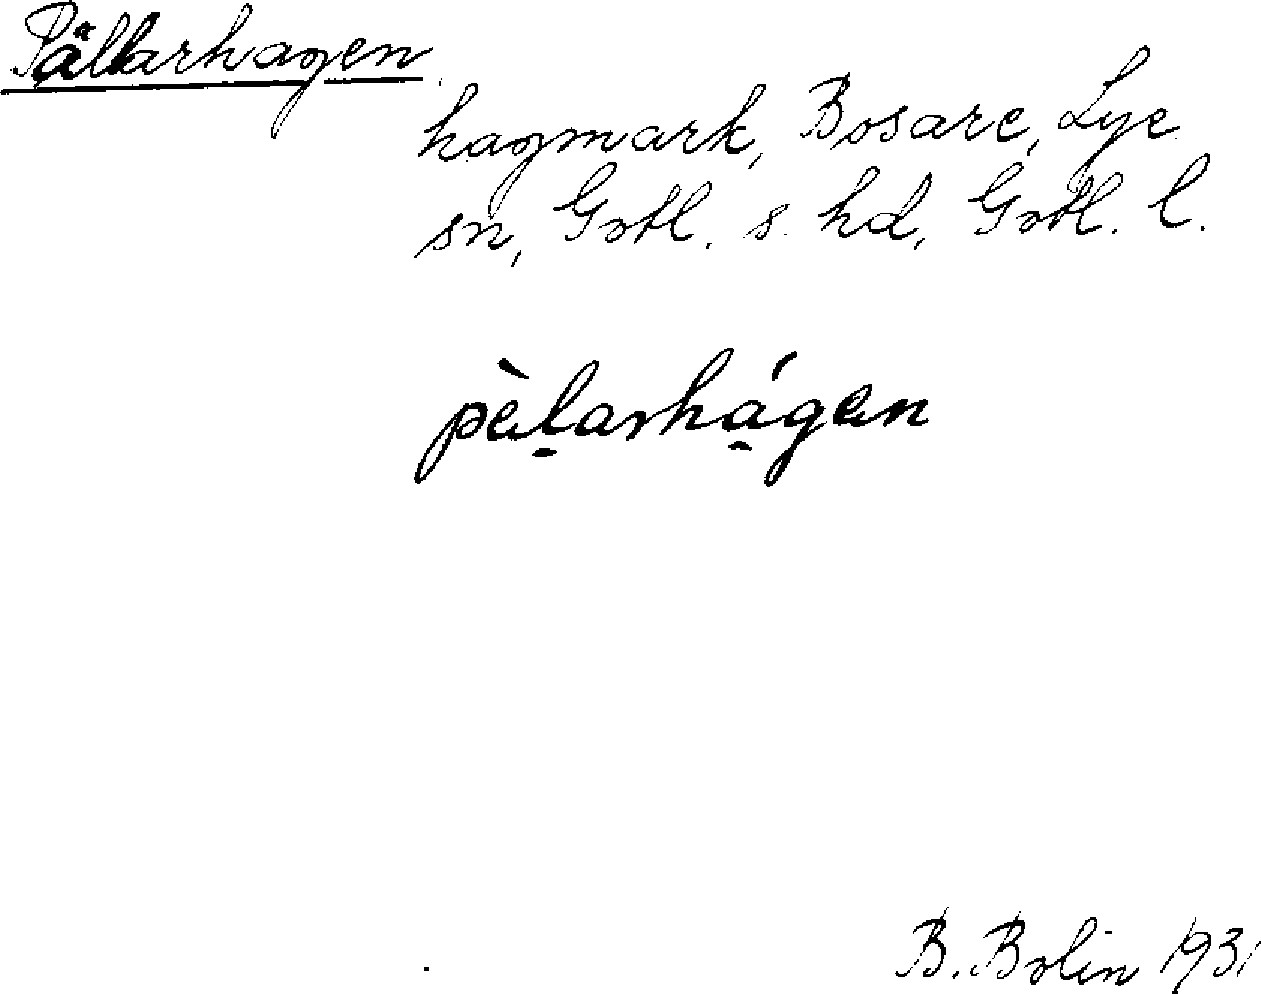 Pällarhagen
hagmark, Bosare, Lye
sn, Gotl. s. hd, Gotl. l.
pèl̠arhá̠gen
B. Bolin 1931